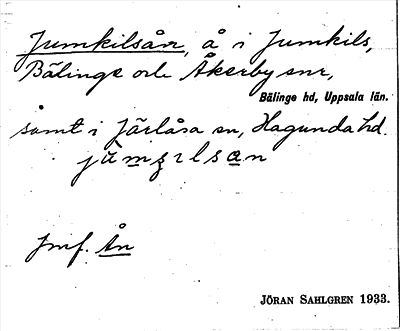 Jumkilsån, å i Jumkils,
Bälinge och Åkerby snr,
Bälinge hd, Uppsala län.
samt i Järlåsa sn, Hagunda hd.
Jmf. Ån
JÖRAN SAHLGREN 1933.